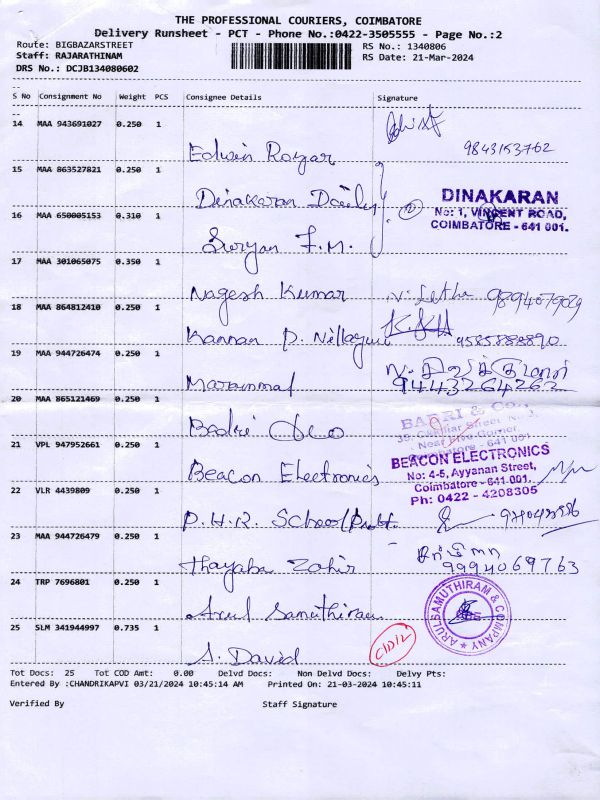 THE PROFESSIONAL COURIERS, COIMBATORE
Delivery Runsheet - PCT - Phone No.:0422-3505555 - Page No.:2
Route: BIGBAZARSTREET RS No.: 1340806
Staff: RAJARATHINAM RS Date: 21-Mar-2024
DRS No.: DCJB134080602
S No Consignment No Weight PCS Consignee Details Signature
14 MAA 943691027 0.250 1
Edwin Rozar 9843153762
15 MAA 863527821 0.250 1
Dinakaran Daily
DINAKARAN
No: 1, VINCENT ROAD,
COIMBATORE - 641 001.
16 MAA 650005153 0.310 1
Suryan F.M.
17 MAA 301065075 0.350 1
Nagesh Kumar
18 MAA 864812410 0.250 1
Kannan P. 9585888890
19 MAA 944726474 0.250 1
9443264262
20 MAA 865121469 0.250 1
BADRI & Co.,
21 VPL 947952661 0.250 1
Beacon Electronics
BEACON ELECTRONICS
No: 4-5, Ayyanan Street,
Coimbatore - 641 001.
Ph: 0422 - 4208305
22 VLR 4439809 0.250 1
P.H.R. School
23 MAA 944726479 0.250 1
Thayaba Zahir 9994069763
24 TRP 7696801 0.250 1
Arul Samuthiram
ARULSAMUTHIRAM & COMPANY
25 SLM 341944997 0.735 1
A. David
Tot Docs: 25 Tot COD Amt: 0.00 Delvd Docs: Non Delvd Docs: Delvy Pts:
Entered By :CHANDRIKAPVI 03/21/2024 10:45:14 AM Printed On: 21-03-2024 10:45:11
Verified By Staff Signature